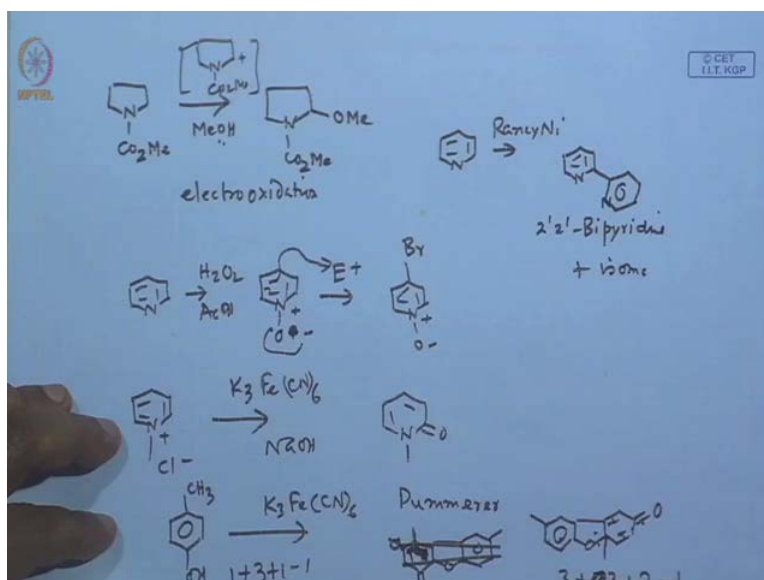 NPTEL
© CET
I.I.T. KGP
+
N
CO2Me
N
CO2Me
MeOH
N
OMe
CO2Me
electrooxidation
N
Raney Ni
N
N
2'2'-Bipyridine
+ isome
N
H2O2
AcOH
N
+
O
-
E+
Br
N
+
O-
N
+
Cl-
K3Fe(CN)6
NaOH
N
O
CH3
OH
K3Fe(CN)6
1+3+1-1
Pummerer
O